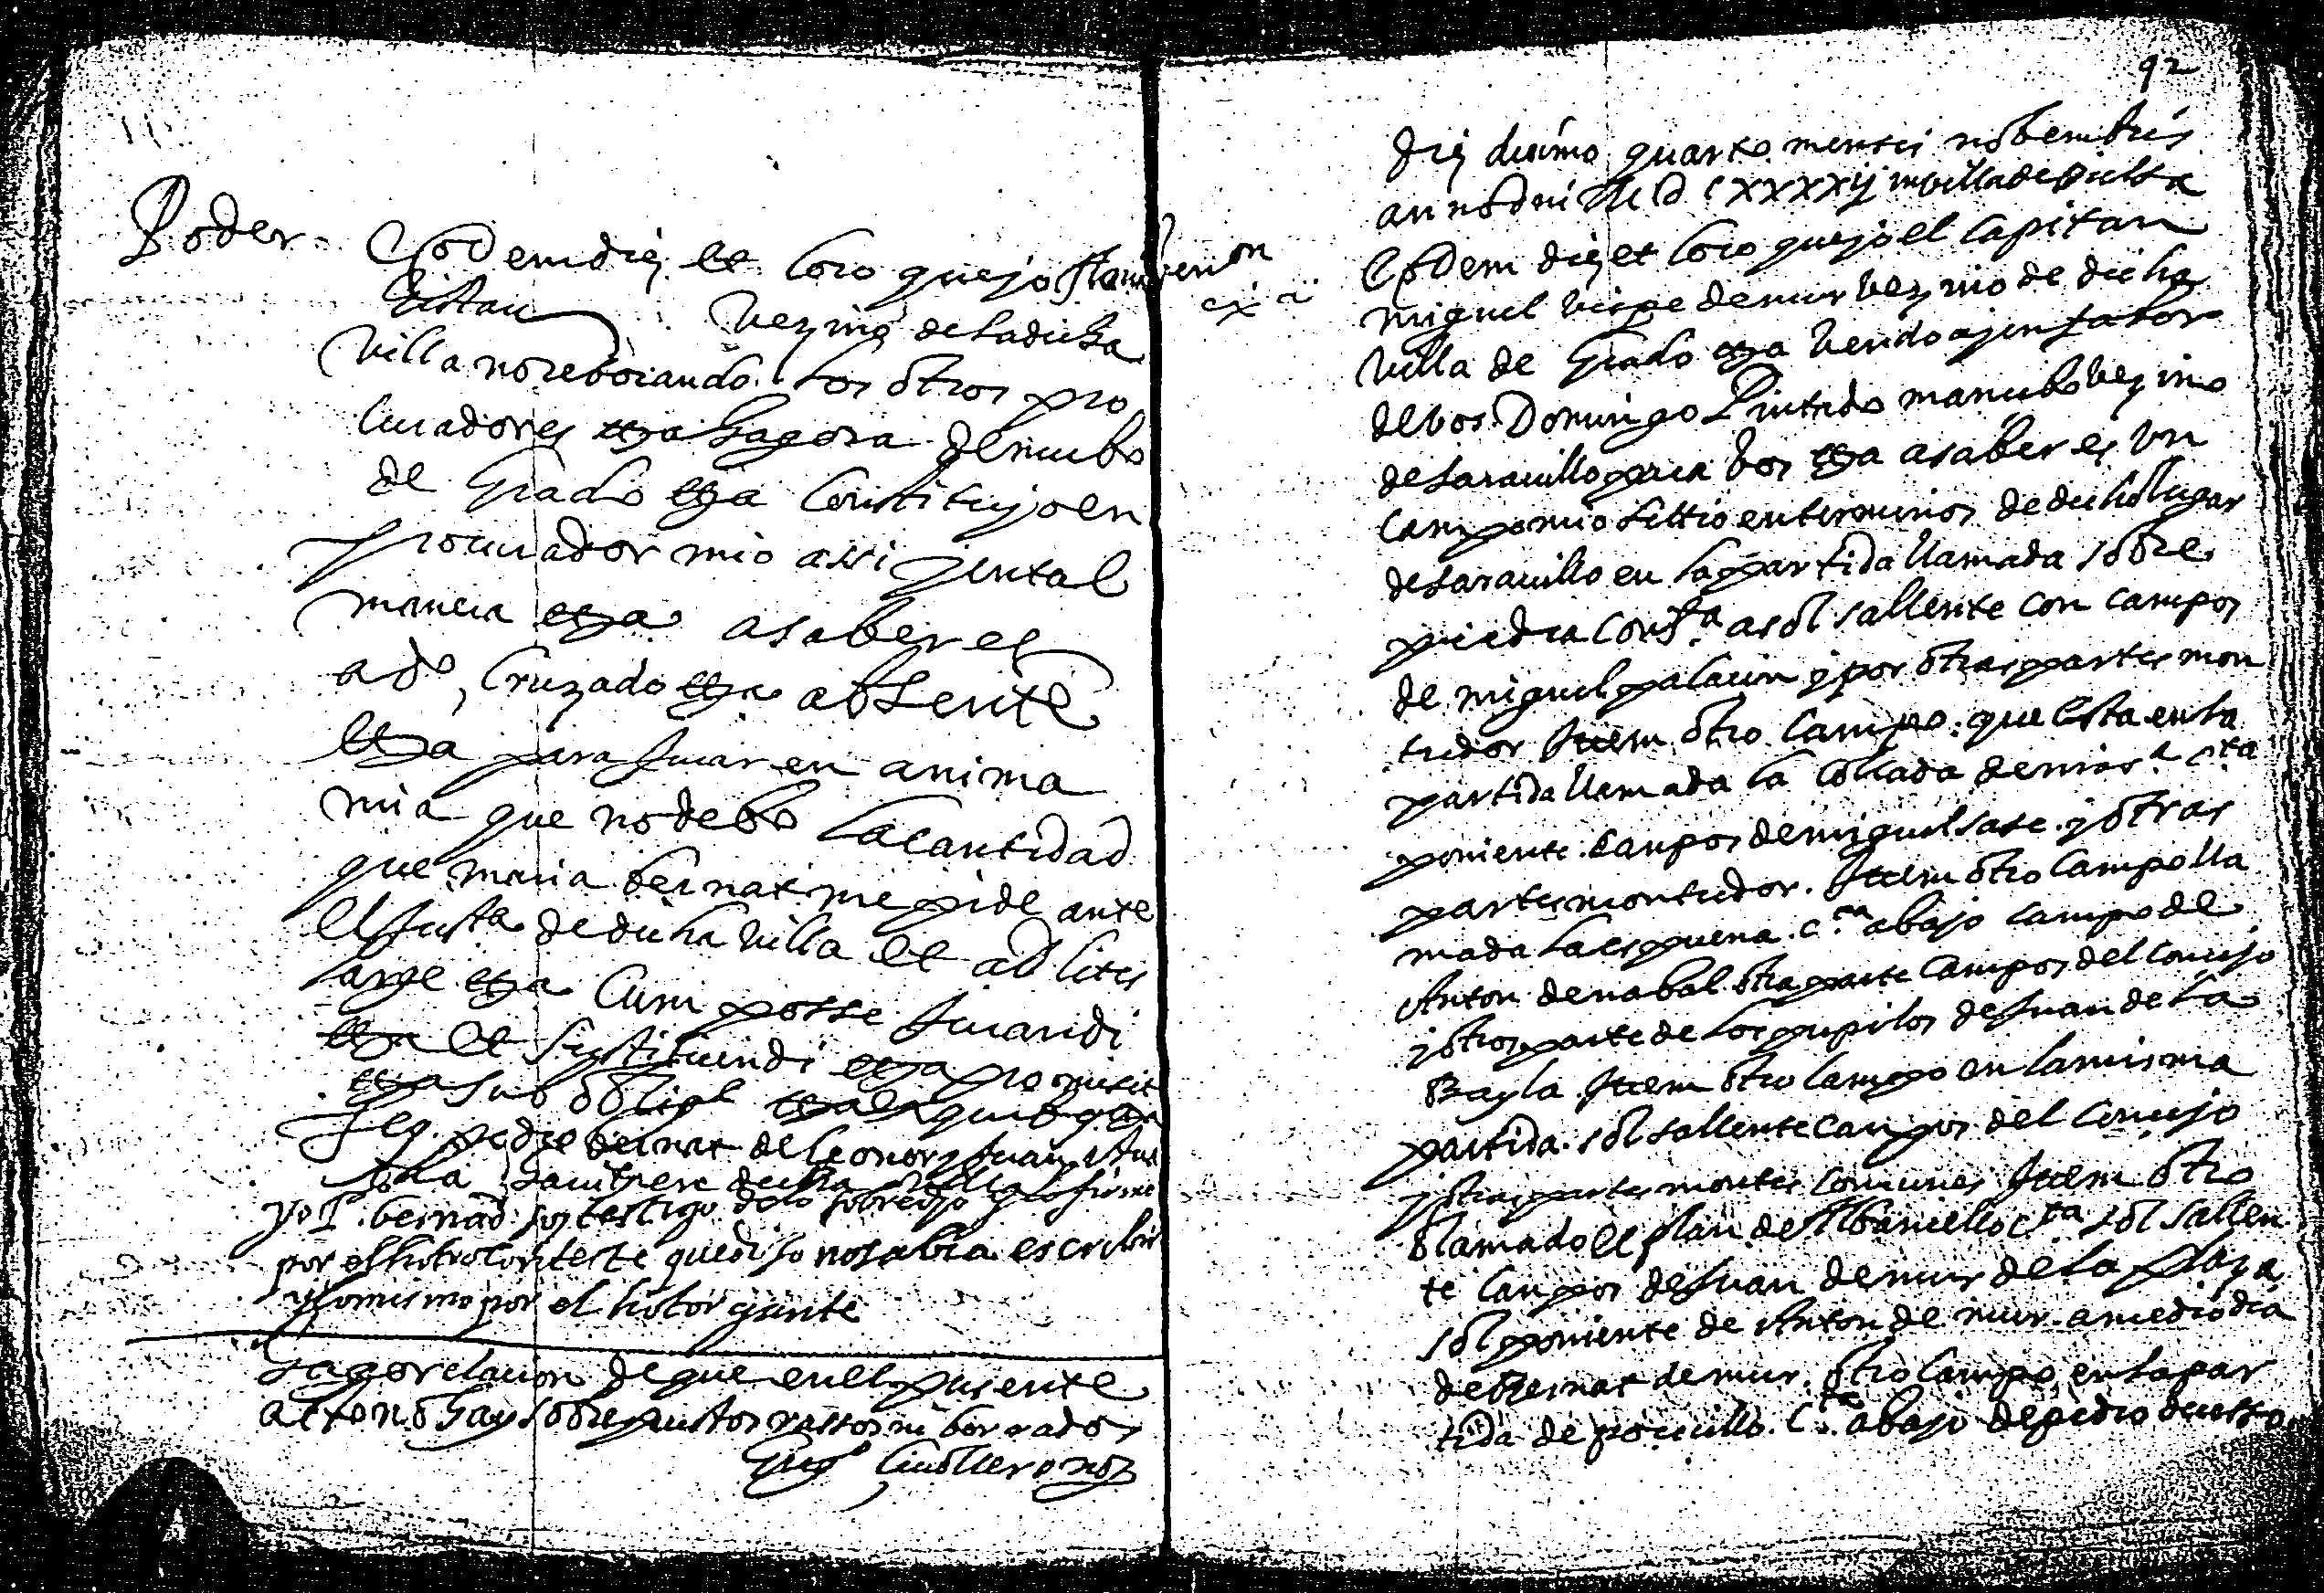 Poder
Eodem die et loco que yo Juan
Gistau vezino de la dicha
villa no rebocando los otros pro
curadores etta hagora de nuebo
de Grado etta Constituyo en
procurador mio assi y en tal
manera etta a saber es
a do Cruzado etta absente
etta para Jurar en anima
mia que no debo la cantidad
que maria bernat me pide ante
el Justa de dicha villa et ad lites
large etta Cum posse Jurandi
etta et sustituendi etta promisit
etta sub obligt etta ex quibus etta
Ts. pedro bernat de leonor y Juan
dicha villa
yo P. bernad soy testigo de lo sobredijo y lo firmo
por el hotro conteste que dijo no sabia escribir
y lo mismo por el hotorgante
hago relacion de que en el presente
acto no hay sobrepuestos rassos ni borrados
not
92
Die decimo quarto mensis nobembris
anno dni M D C XXXXij in villa de
vendon
Eodem die et loco que yo el Capitan
miguel de mur vezino de dicha
villa de Grado etta vendo a y en fabor
de bos Domingo Pintado mancebo vezino
de saravillo para bos etta a saber es un
campo mio sittio en terminos de dicho lugar
de saravillo en la partida llamada sobre
piedra confta a sol sallente con campos
de miguel palacin y por otras partes mon
tudor Item otro Campo que esta en la
partida llamada la Collada de cta
poniente campos de miguel sase y otras
partes montudor. Item otro Campo lla
mada la espuena cta abajo campo de
Anton de nabal otra parte campos del Concejo
y otra parte de los pupilos de Juan de la
Bayla Item otro campo en la misma
partida. sol sallente campos del Concejo
y otras partes montes comunes Item otro
llamado el plan de cta sol sallen
te campos de Juan de mur de la plaza
sol poniente de Anton de mur a mediodia
de Bernat de mur. otro Campo en la par
tida de cta abajo de pedro